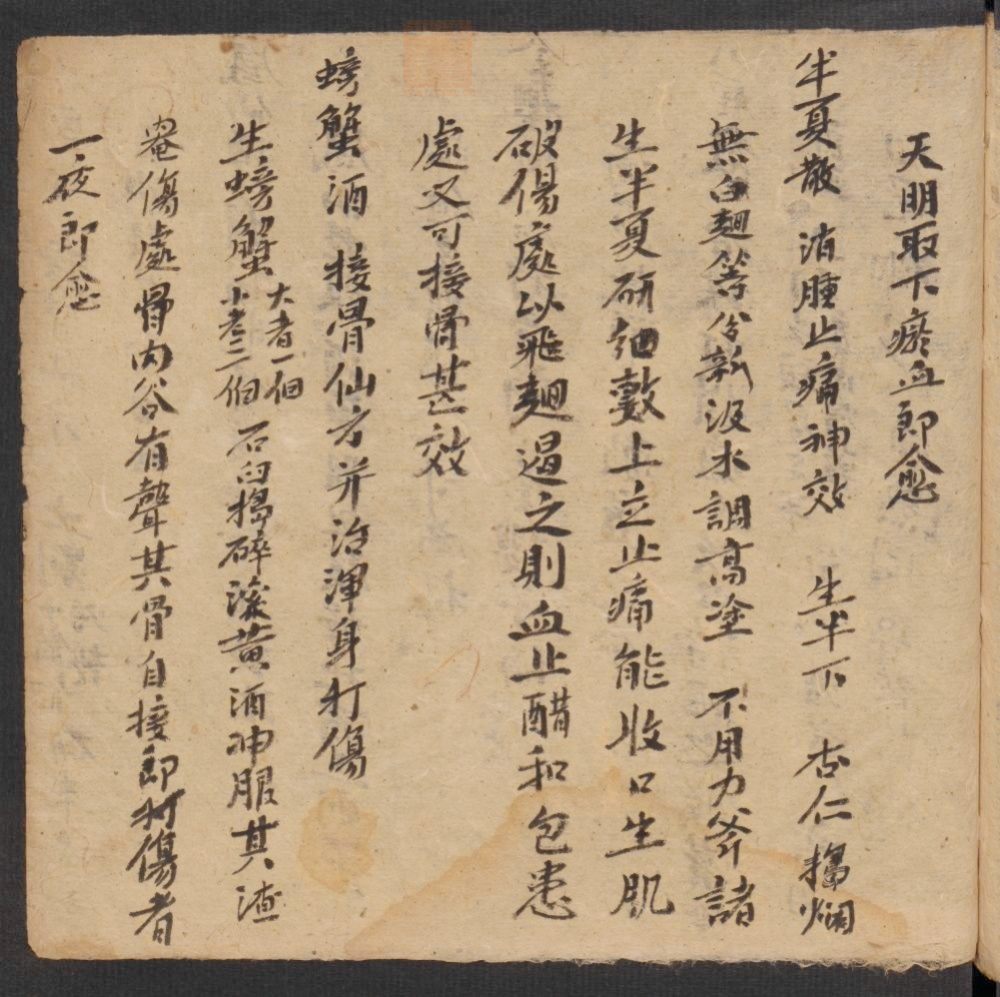 天明取下瘀血即愈
半夏散 消腫止痛神效 生半下 杏仁擣爛
無白麯等分新汲水調高塗 不用刀斧諸
生半夏研細數上立止痛能收口生肌
破傷處以飛麯遏之則血止醋和包患
處又可接骨甚效
螃蟹酒 接骨仙方并治渾身打傷
生螃蟹大者一個小者二個石臼搗碎滾黃酒冲服其渣
罨傷處骨內谷有聲其骨自接即打傷者
一夜即愈